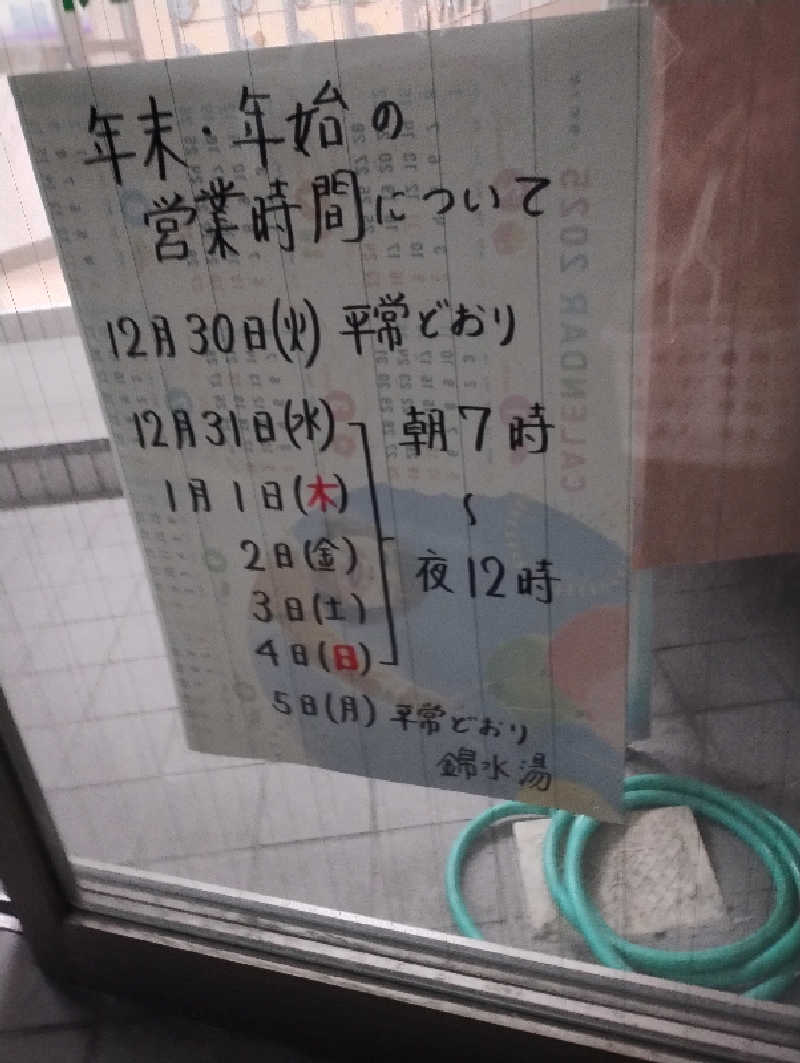 年末・年始の
営業時間について
12月30日(火) 平常どおり
12月31日(水)
1月1日(木)
2日(金)
3日(土)
4日(日)
朝7時
〜
夜12時
5日(月) 平常どおり
錦水湯
CALENDAR 2025